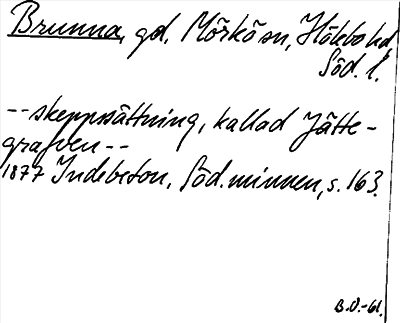 Brunna, gd, Mörkö sn, Hölebo hd,
Söd. l.
-- skeppssättning, kallad Jätte-
grafven --
1877 Indebetou, Söd. minnen, s. 163.
B.O.-61.